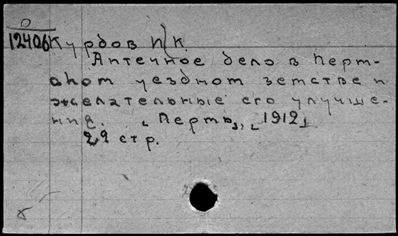 0
12406 Курбов И.К.
Аптечное дело в Перм-
ском уездном земстве и
желательные его улучше-
ния. [Пермь], [1912]
22 стр.